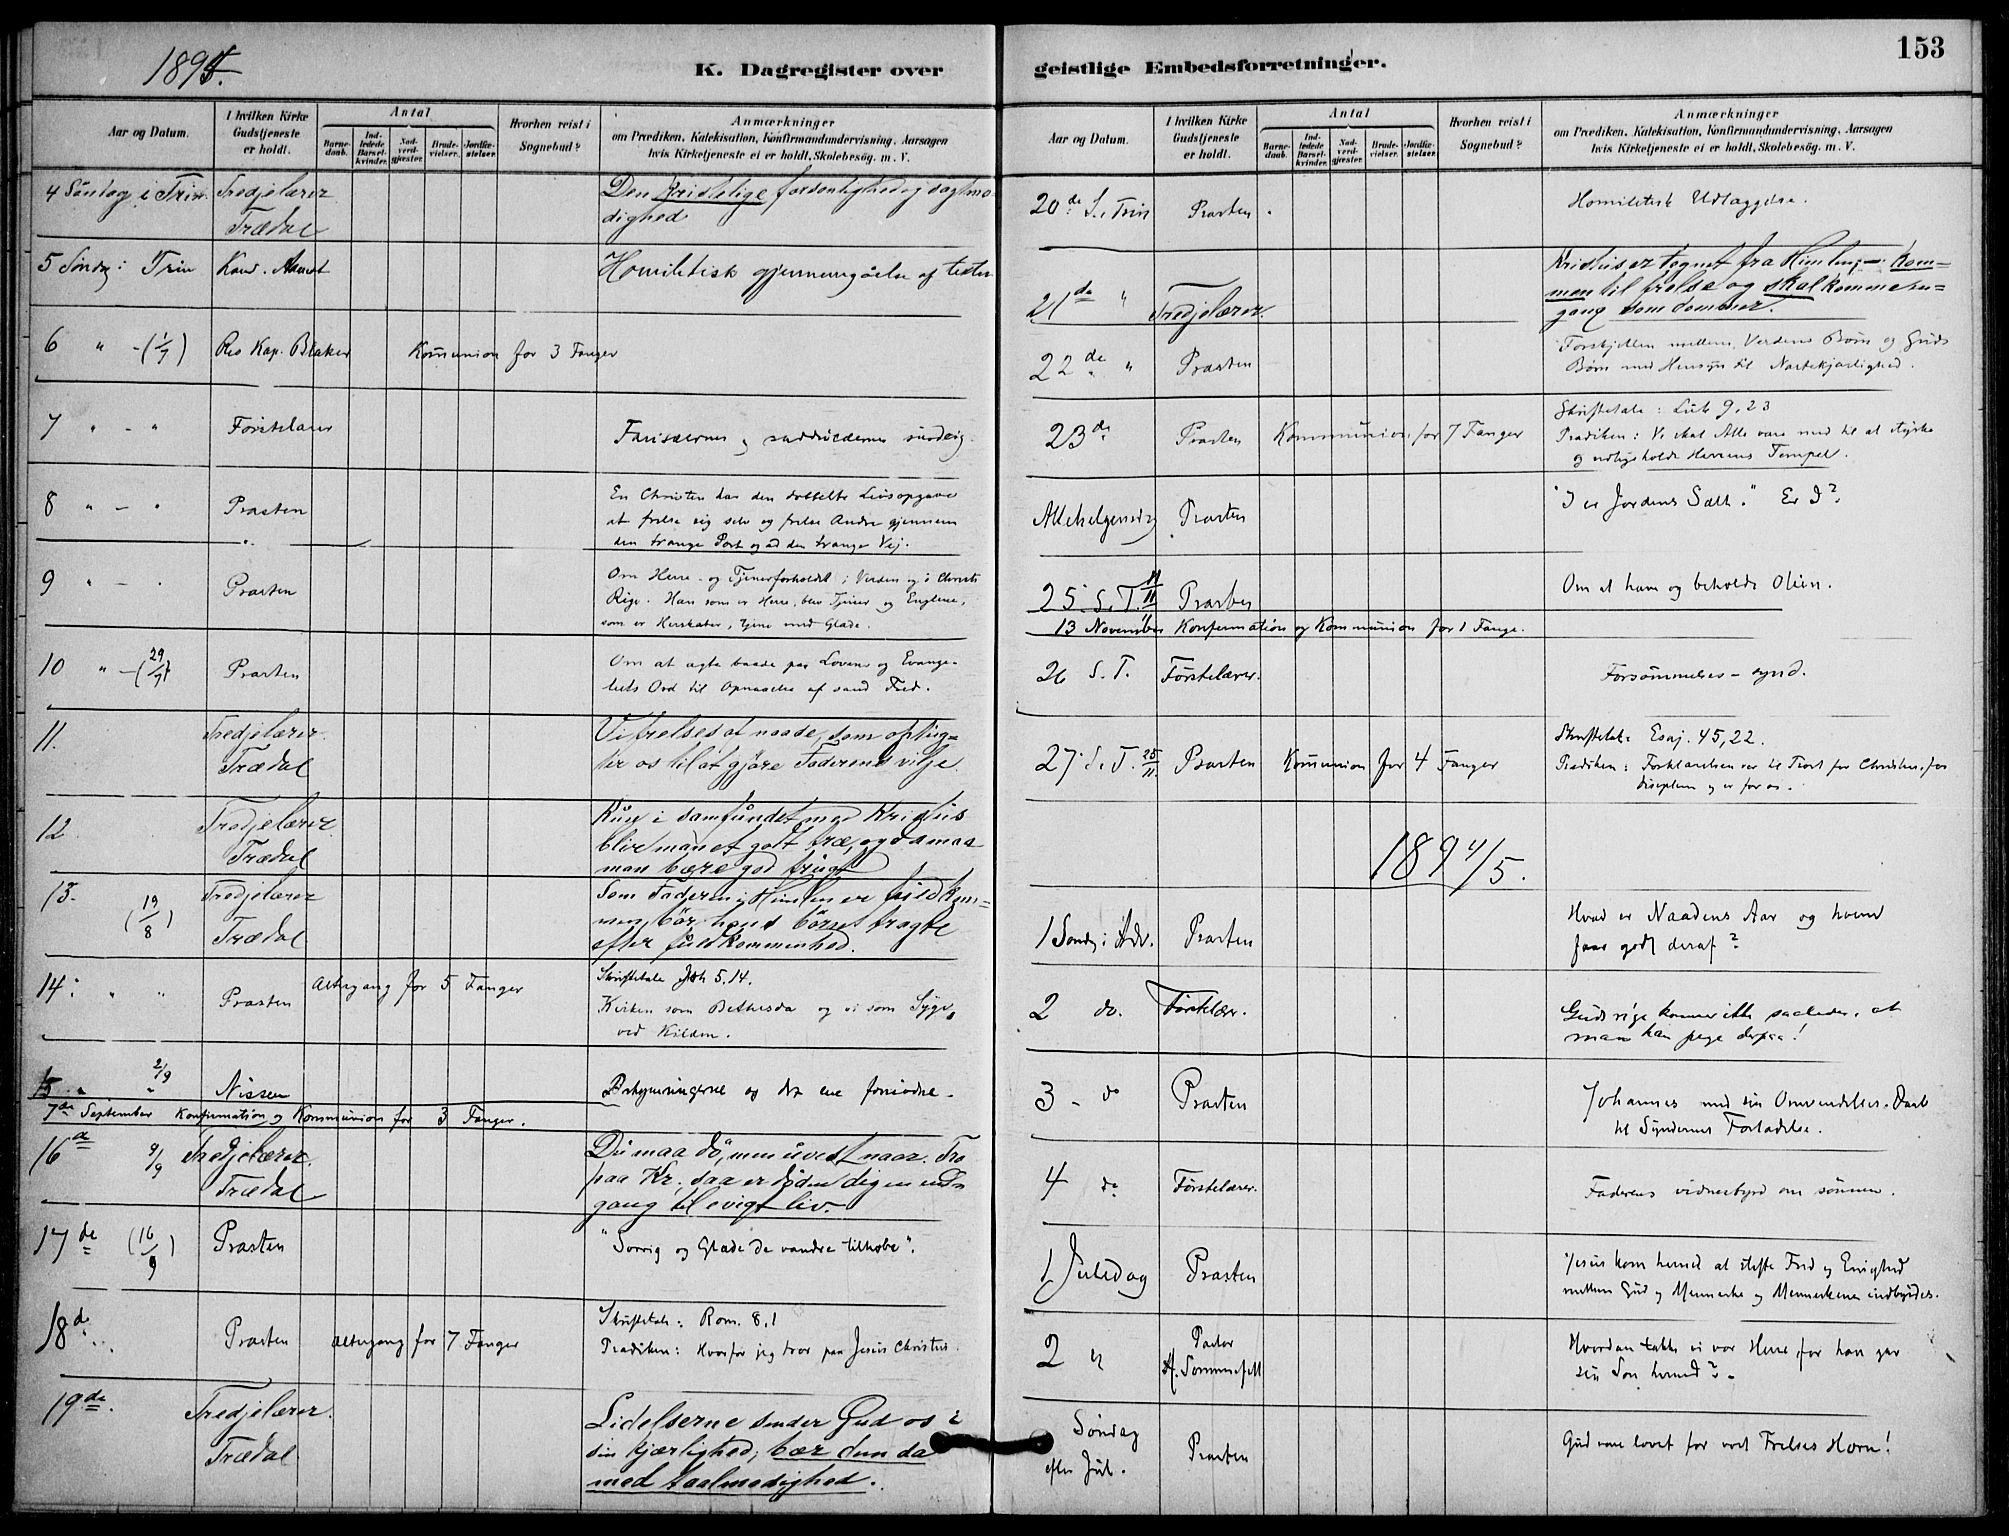 1894.
K. Dagregister over
geistlige Embedsforretninger.
153
Aar og Datum.
I hvilken Kirke Gudstjeneste er holdt.
Antal
Barnedaab.
Indledede Barselkvinder.
Nadverdgjester.
Brudevielser.
Jordfæstelser.
Hvorhen reist i Sognebud?
Anmærkninger
om Prædiken, Katekisation, Konfirmandundervisning, Aarsagen
hvis Kirketjeneste ei er holdt, Skolebesög. m. V.
4 Söndag i Trin. Tredjelærer Trædal
Den kristelige forsonlighed og sagtmo-
dighed
5 Søndg i Trin Kand.
Homiletisk gjennemgåelse af texten
6 " - (1/7) Res Kap. Blaker Kommunion for 3 Fanger
7 " - " Førstelærer
Farisæernes og sadducæernes surdeig.
8 " - " Præsten
En Christen har den dobbelte Livsopgave
at frelse sig selv og frelse Andre gjennem
den trange Port og ad den trange Vej.
9 " - " Præsten
Om Herre- og Tjenerforholdet i Verden og i Christi
Rige. Han som er Herre, blev Tjener og Englene,
som er Herskaber, tjene med Glæde.
10 " - (29/7) Præsten
Om at agte baade paa Lovens og Evange-
liets Ord til Opnaaelse af sand Fred.
11. Tredjelærer Trædal
Vi frelses af naade, som optug-
ter os til at gjöre Faderens vilje.
12 Tredjelærer Trædal
Kun i samfundet med Kristus
blir man et godt træ, og da maa
man bære god frugt
13. (19/8) Tredjelærer Trædal
Som Faderen i Himlen er fuldkom-
men, bör hans börn tragte
efter fuldkommenhed.
14. " " Præsten Altergang for 5 Fanger
Skriftetale Joh 5.14.
Kirken som Bethesda og vi som Syge
ved Kilden.
15 " 2/9 Nissen
Bekymringerne og det ene fornødne.
7de September Konfirmation og Kommunion for 3 Fanger.
16de 9/9 Tredjelærer. Trædal
Du maa dö, men uvist naar. Tro
paa Kr., saa er döden dig en ind-
gang til evigt liv.
17de (16/9) Præsten
"Sorrig og Glæde de vandre tilhobe".
18de " Præsten Altergang for 7 Fanger
Skriftetale: Rom. 8,1
Prædiken: Hvorfor jeg tror paa Jesus Christus.
19de. Tredjelærer. Trædal
Lidelserne sender Gud os i
sin kjærlighed; bær dem da
med taalmodighed.
Aar og Datum.
I hvilken Kirke Gudstjeneste er holdt.
Antal
Barnedaab.
Indledede Barselkvinder.
Nadverdgjester.
Brudevielser.
Jordfæstelser.
Hvorhen reist i Sognebud?
Anmærkninger
om Prædiken, Katekisation, Konfirmandundervisning, Aarsagen
hvis Kirketjeneste ei er holdt, Skolebesög. m. V.
20de S. i Trin Præsten.
Homiletisk Udlæggelse.
21de " Tredjelærer.
Kristus er tegnet fra Himlen; - kom-
men til frelse og skal komme en-
gang som dommer.
22de " Præsten
Forskjellen mellem Verdens Børn og Guds
Børn med Hensyn til Næstekjærlighed.
23de Præsten Kommunion for 7 Fanger
Skriftetale: Luk 9,23
Prædiken: Vi skal Alle være med til at styrke
og vedligeholde Herrens Tempel.
Allehelgensdg Præsten
"I er Jordens Salt." Er I?
25 S. T. 11/11 Præsten
Om at have og beholde Olien.
13 November Konfirmation og Kommunion for 1 Fange.
26 S. T. Førstelærer.
Forsømmelses-synd.
27 S. T. 25/11. Præsten Kommunion for 4 Fanger
Skriftetale Esaj. 45,22.
Prædiken: Forklarelsen var til Trøst for Christus, for
disciplene og er for os.
1894/5.
1 Søndg i Adv. Præsten
Hvad er Naadens Aar og hvem
faar godt deraf?
2 do. Førstelær.
Guds rige kommer ikke saaledes, at
man kan pege derpaa!
3 - do Præsten
Johannes med sin Omvendelses-Daab
til Syndernes Forladelse.
4 do Førstelærer.
Faderens vidnesbyrd om sönnen.
1 Juledag Præsten
Jesus kom herned at stifte Fred og Enighed
mellem Gud og Mennesker og Menneskene indbyrdes.
2 " Pastor H. Sommerfelt
Hvordan takke vi vor Herre, for han gav
sin Søn herned?
Søndag efter Jul. Præsten
Gud være lovet for vort Frelses Horn!